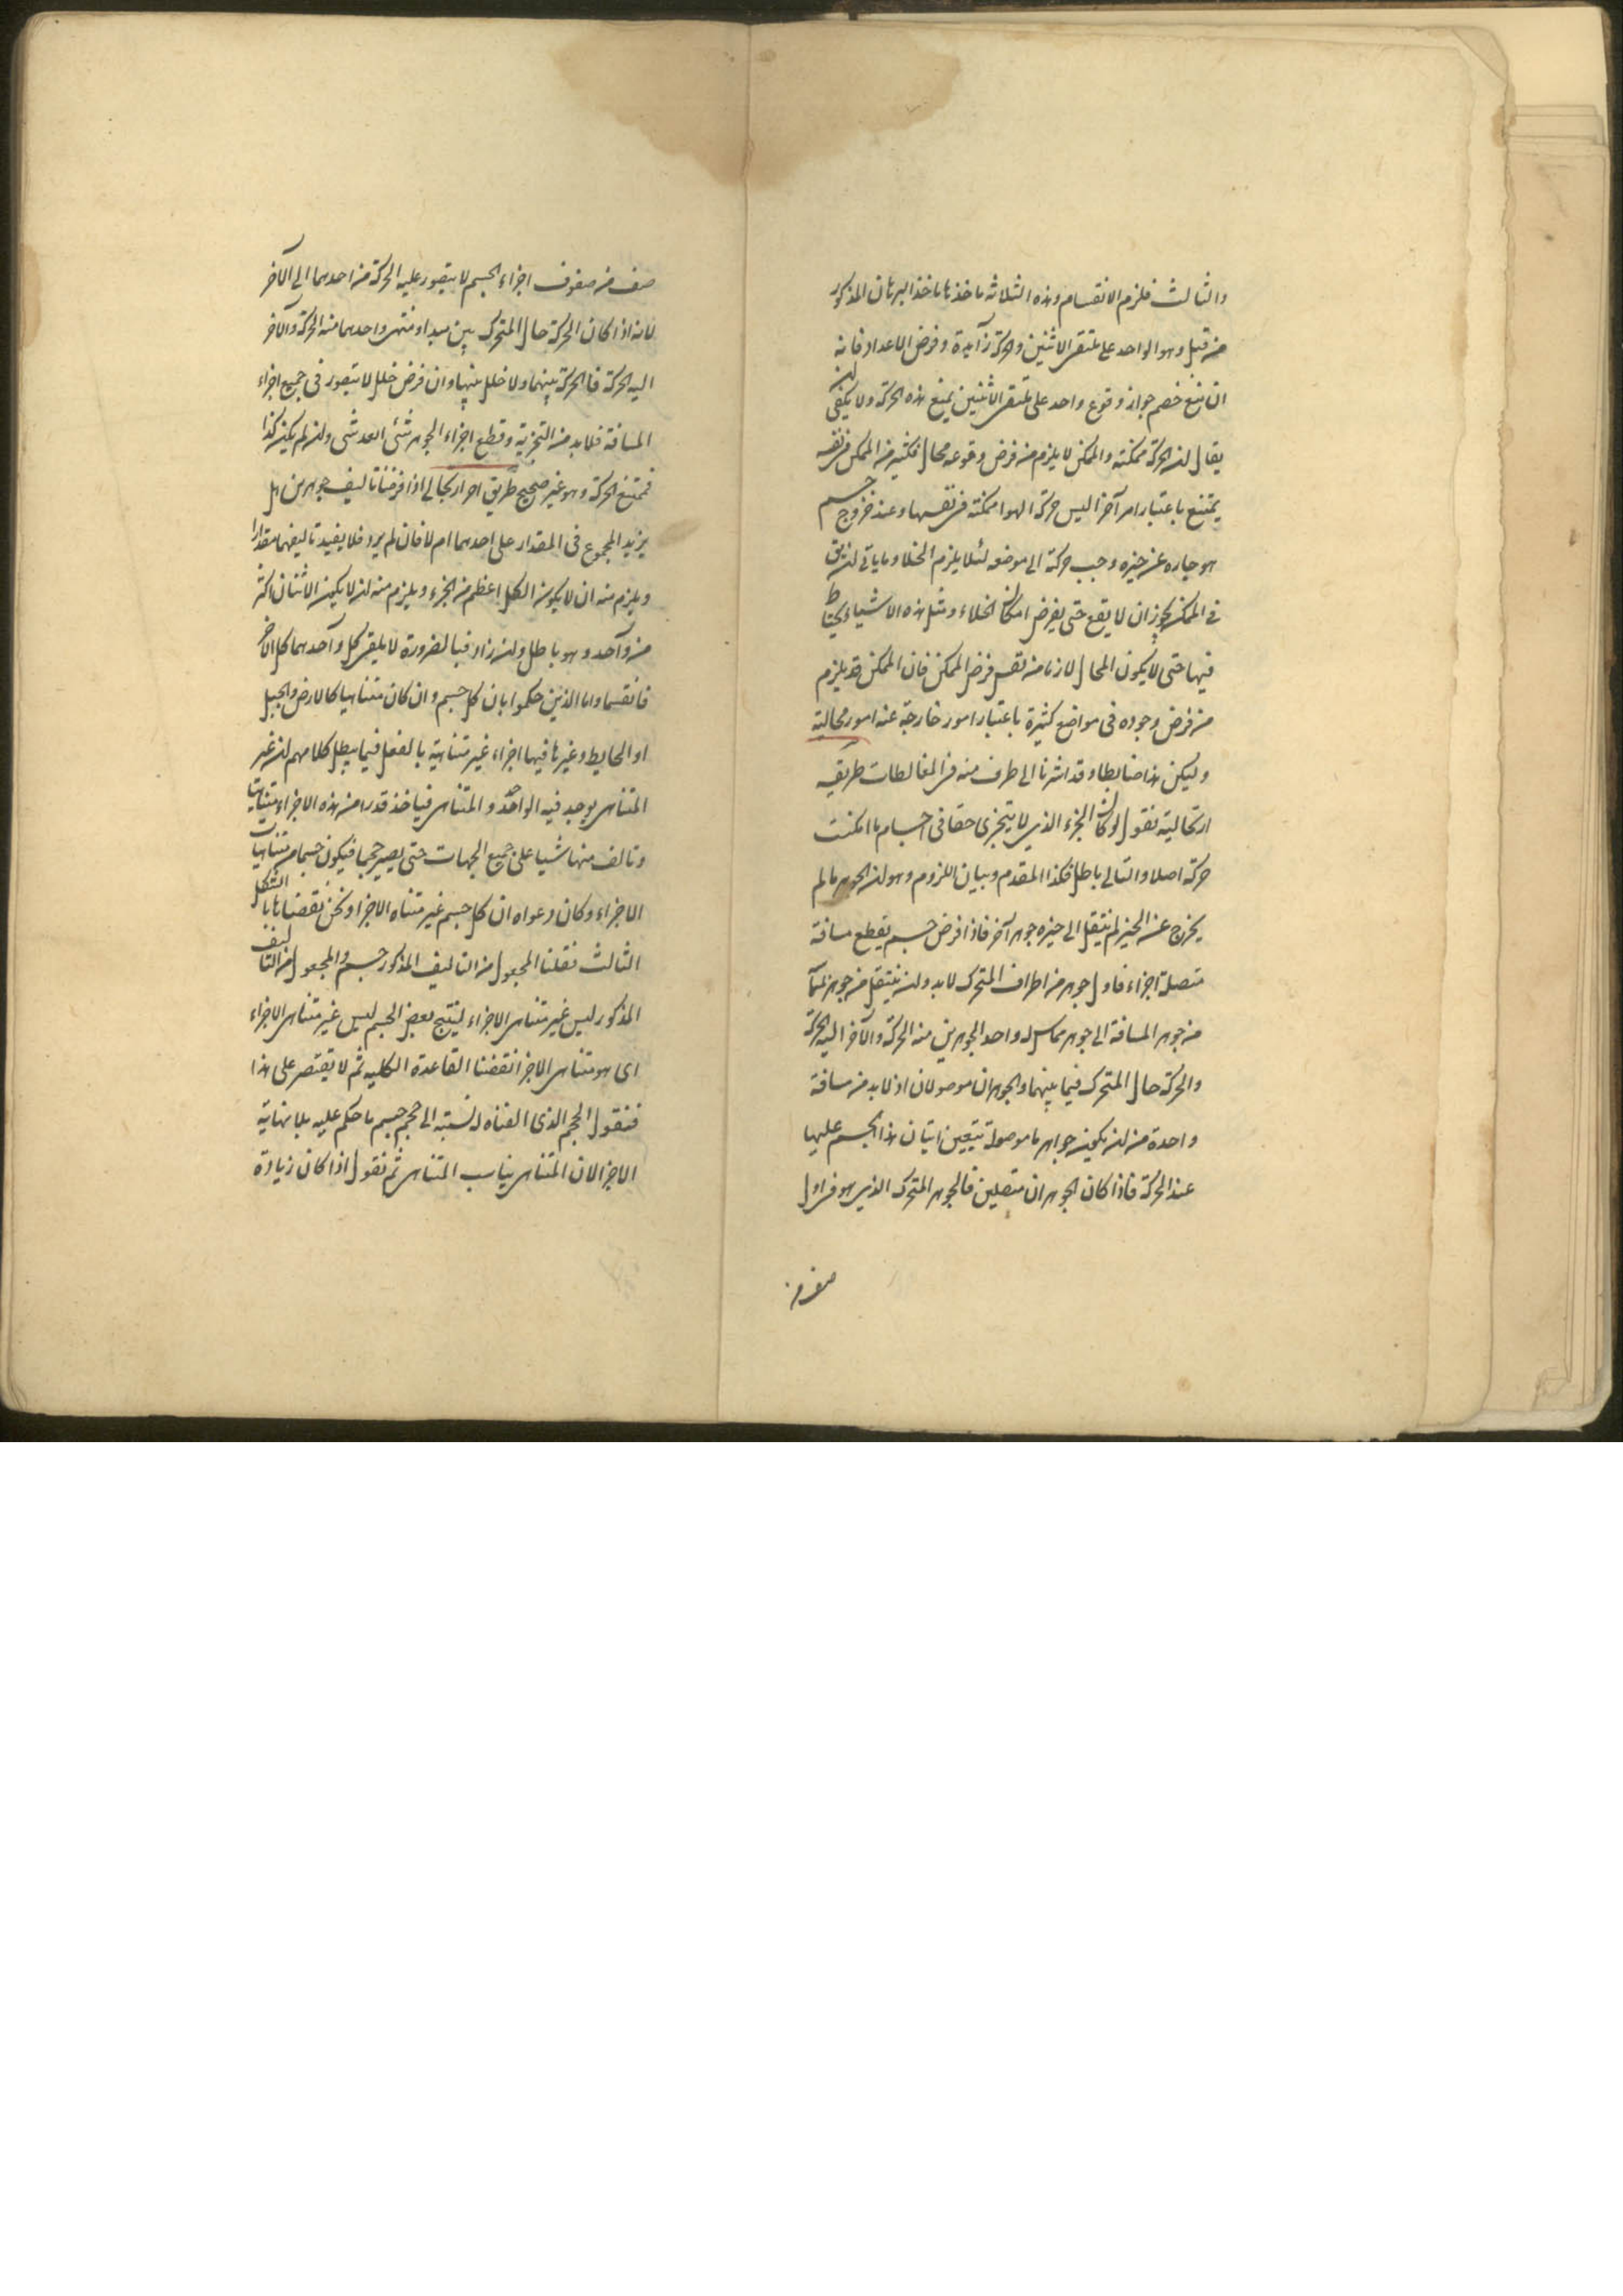 والثالث فلزم الانقسام وهذه الثلاثة ماخذها ماخذ البرهان المذكور
من قبل وهو الواحد على ملتقى الاثنين والحركة زايدة وفرض الاعداد فانه
ان منع خصم جواز وقوع واحد على ملتقى الاثنين يمنع هذه الحركة ولا يكفى ان
يقال ان الحركة ممكنة والممكن لا يلزم من فرض وقوعه محال فكثير من الممكن فى نفسه
يمتنع باعتبار امر آخر اليس حركة الهوا ممكنة فى نفسها وعند خروج جسم
هو جاره عن حيزه وجب حركة الى موضعه لئلا يلزم الخلا وما ياتى
فى الممكن يجوز ان لا يقع حتى يفرض امكان الخلاء ومثل هذه الاشياء يحتاط
فيها حتى لا يكون المحال لازما من نفس فرض الممكن فان الممكن قد يلزم
من فرض وجوده فى مواضع كثيرة باعتبار امور خارجة عنه امور محالية
وليكن هذا ضابطا وقد اشرنا الى طرف منه فى المغالطات طريقه
ارتجالية نقول لو كان الجزء الذى لا يتجزى حقا فى اجسام ما امكنت
حركة اصلا والتالى باطل فكذا المقدم وبيان اللزوم وهو ان الجوهر ما لم
يخرج عن الحيز لم ينتقل الى حيزه جوهر آخر فاذا فرض جسم يقطع مسافة
متصلة اجزاء فاول جوهر من اطراف المتحرك لابد وان ينتقل من جوهر
من جوهر المسافة الى جوهر مماس له واحد الجوهرين منه الحركة والآخر اليه الحركة
والحركة حال المتحرك فيما بينهما والجوهران موصولان اذ لابد من مسافة
واحدة من ان يكون جواهرها موصولة يتعين اتيان هذا الجسم عليها
عند الحركة فاذا كان الجوهران متصلين فالجوهر المتحرك الذى هو فى اول
صف من
صف من صفوف اجزاء الجسم لا يتصور عليه الحركة من احدهما الى الآخر
لانه اذا كان الحركة حال المتحرك بين مبدا ومنتهى واحدهما منه الحركة والآخر
اليه الحركة فالحركة بينهما ولا خلل بينهما وان فرض خلل لا يتصور فى جميع اجزاء
المسافة فلابد من التجزية وقطع اجزاء الجوهر شئى بعد شى وان لم يكن كذا
فيمتنع الحركة وهو غير صحيح طريق اخر ارتجالى اذا فرضنا تاليف جوهرين هل
يزيد المجموع فى المقدار على احدهما ام لا فان لم يزد فلا يفيد تاليفهما مقدارا
ويلزم منه ان لا يكون الكل اعظم من الجزء ويلزم منه ان لا يكون الاثنان اكثر
من واحد وهو باطل وان زاد فبالضرورة لا يلقى كل واحد هما كل الآخر
فانقسما واما الذين حكموا بان كل جسم وان كان متناهيا كالارض والجبل
او الحايط وغيرها فيها اجزاء غير متناهية بالفعل فيما يبطل كلامهم ان غير
المتناهى يوجد فيه الواحد والمتناهى فياخذ قدرا من هذه الاجزاء متناهيا
وتالف منها شيا على جميع الجهات حتى يصير حجما فيكون جسما متناهيات
الاجزاء وكان دعواه ان كل جسم غير متناه الاجزا ونحن نقضناها بالشكل
الثالث فقلنا المجعول من التاليف المذكور جسم والمجعول من التاليف
المذكور ليس غير متناهى الاجزاء لينتج بعض الجسم ليس غير متناهى الاجزاء
اى هو متناهى الاجزا نقضنا القاعدة الكليه ثم لا يقتصر على هذا
فنقول الحجم الذى الفناه له نسبة الى حجم جسم ما حكم عليه بلا نهاية
الاجزا لان المتناهى يناسب المتناهى ثم نقول اذا كان زيادة